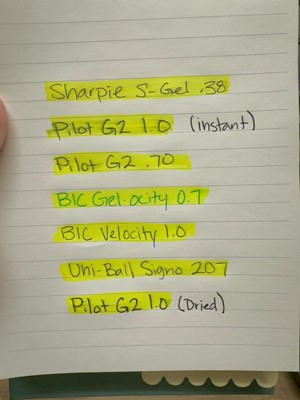 Sharpie S-Gel .38
Pilot G2 1.0 (instant)
Pilot G2 .70
BIC Gel-ocity 0.7
BIC Velocity 1.0
Uni-Ball Signo 207
Pilot G2 1.0 (Dried)